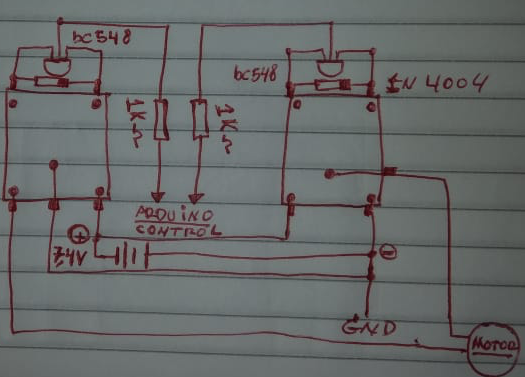 bc548
bc548
1N 4004
1K
1K
ARDUINO
CONTROL
+
7.4V
-
GND
MOTOR